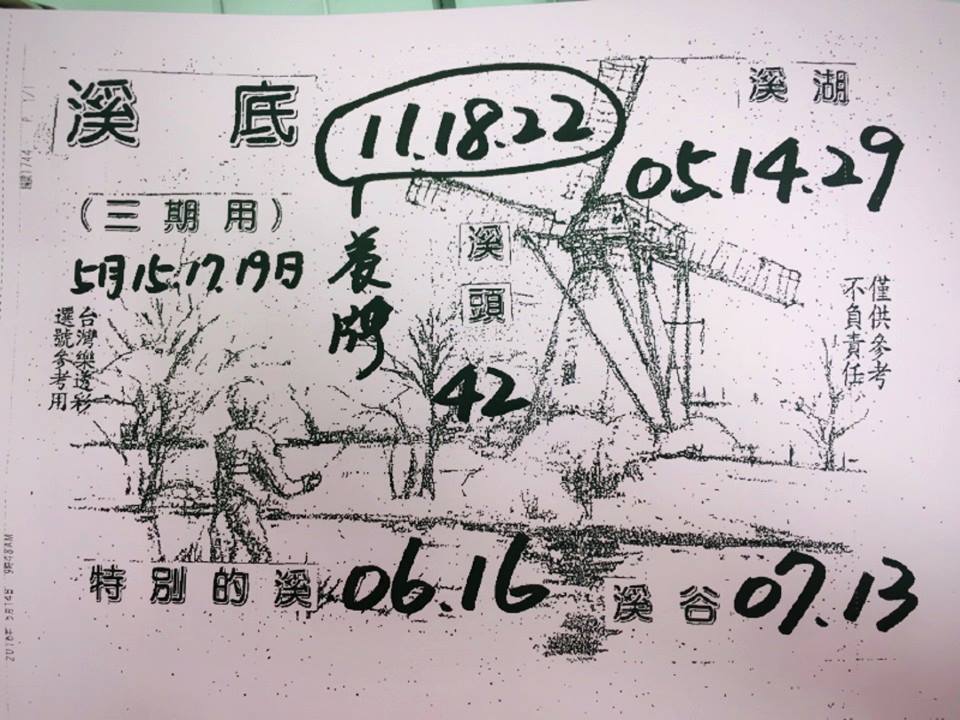 溪底
11.18.22
溪湖
05.14.29
(三期用)
5月15.17.19日
養牌
溪頭
42
僅供參考
不負責任
台灣樂透彩
選號參考用
特別的溪
06.16
溪谷
07.13
P. 1/1